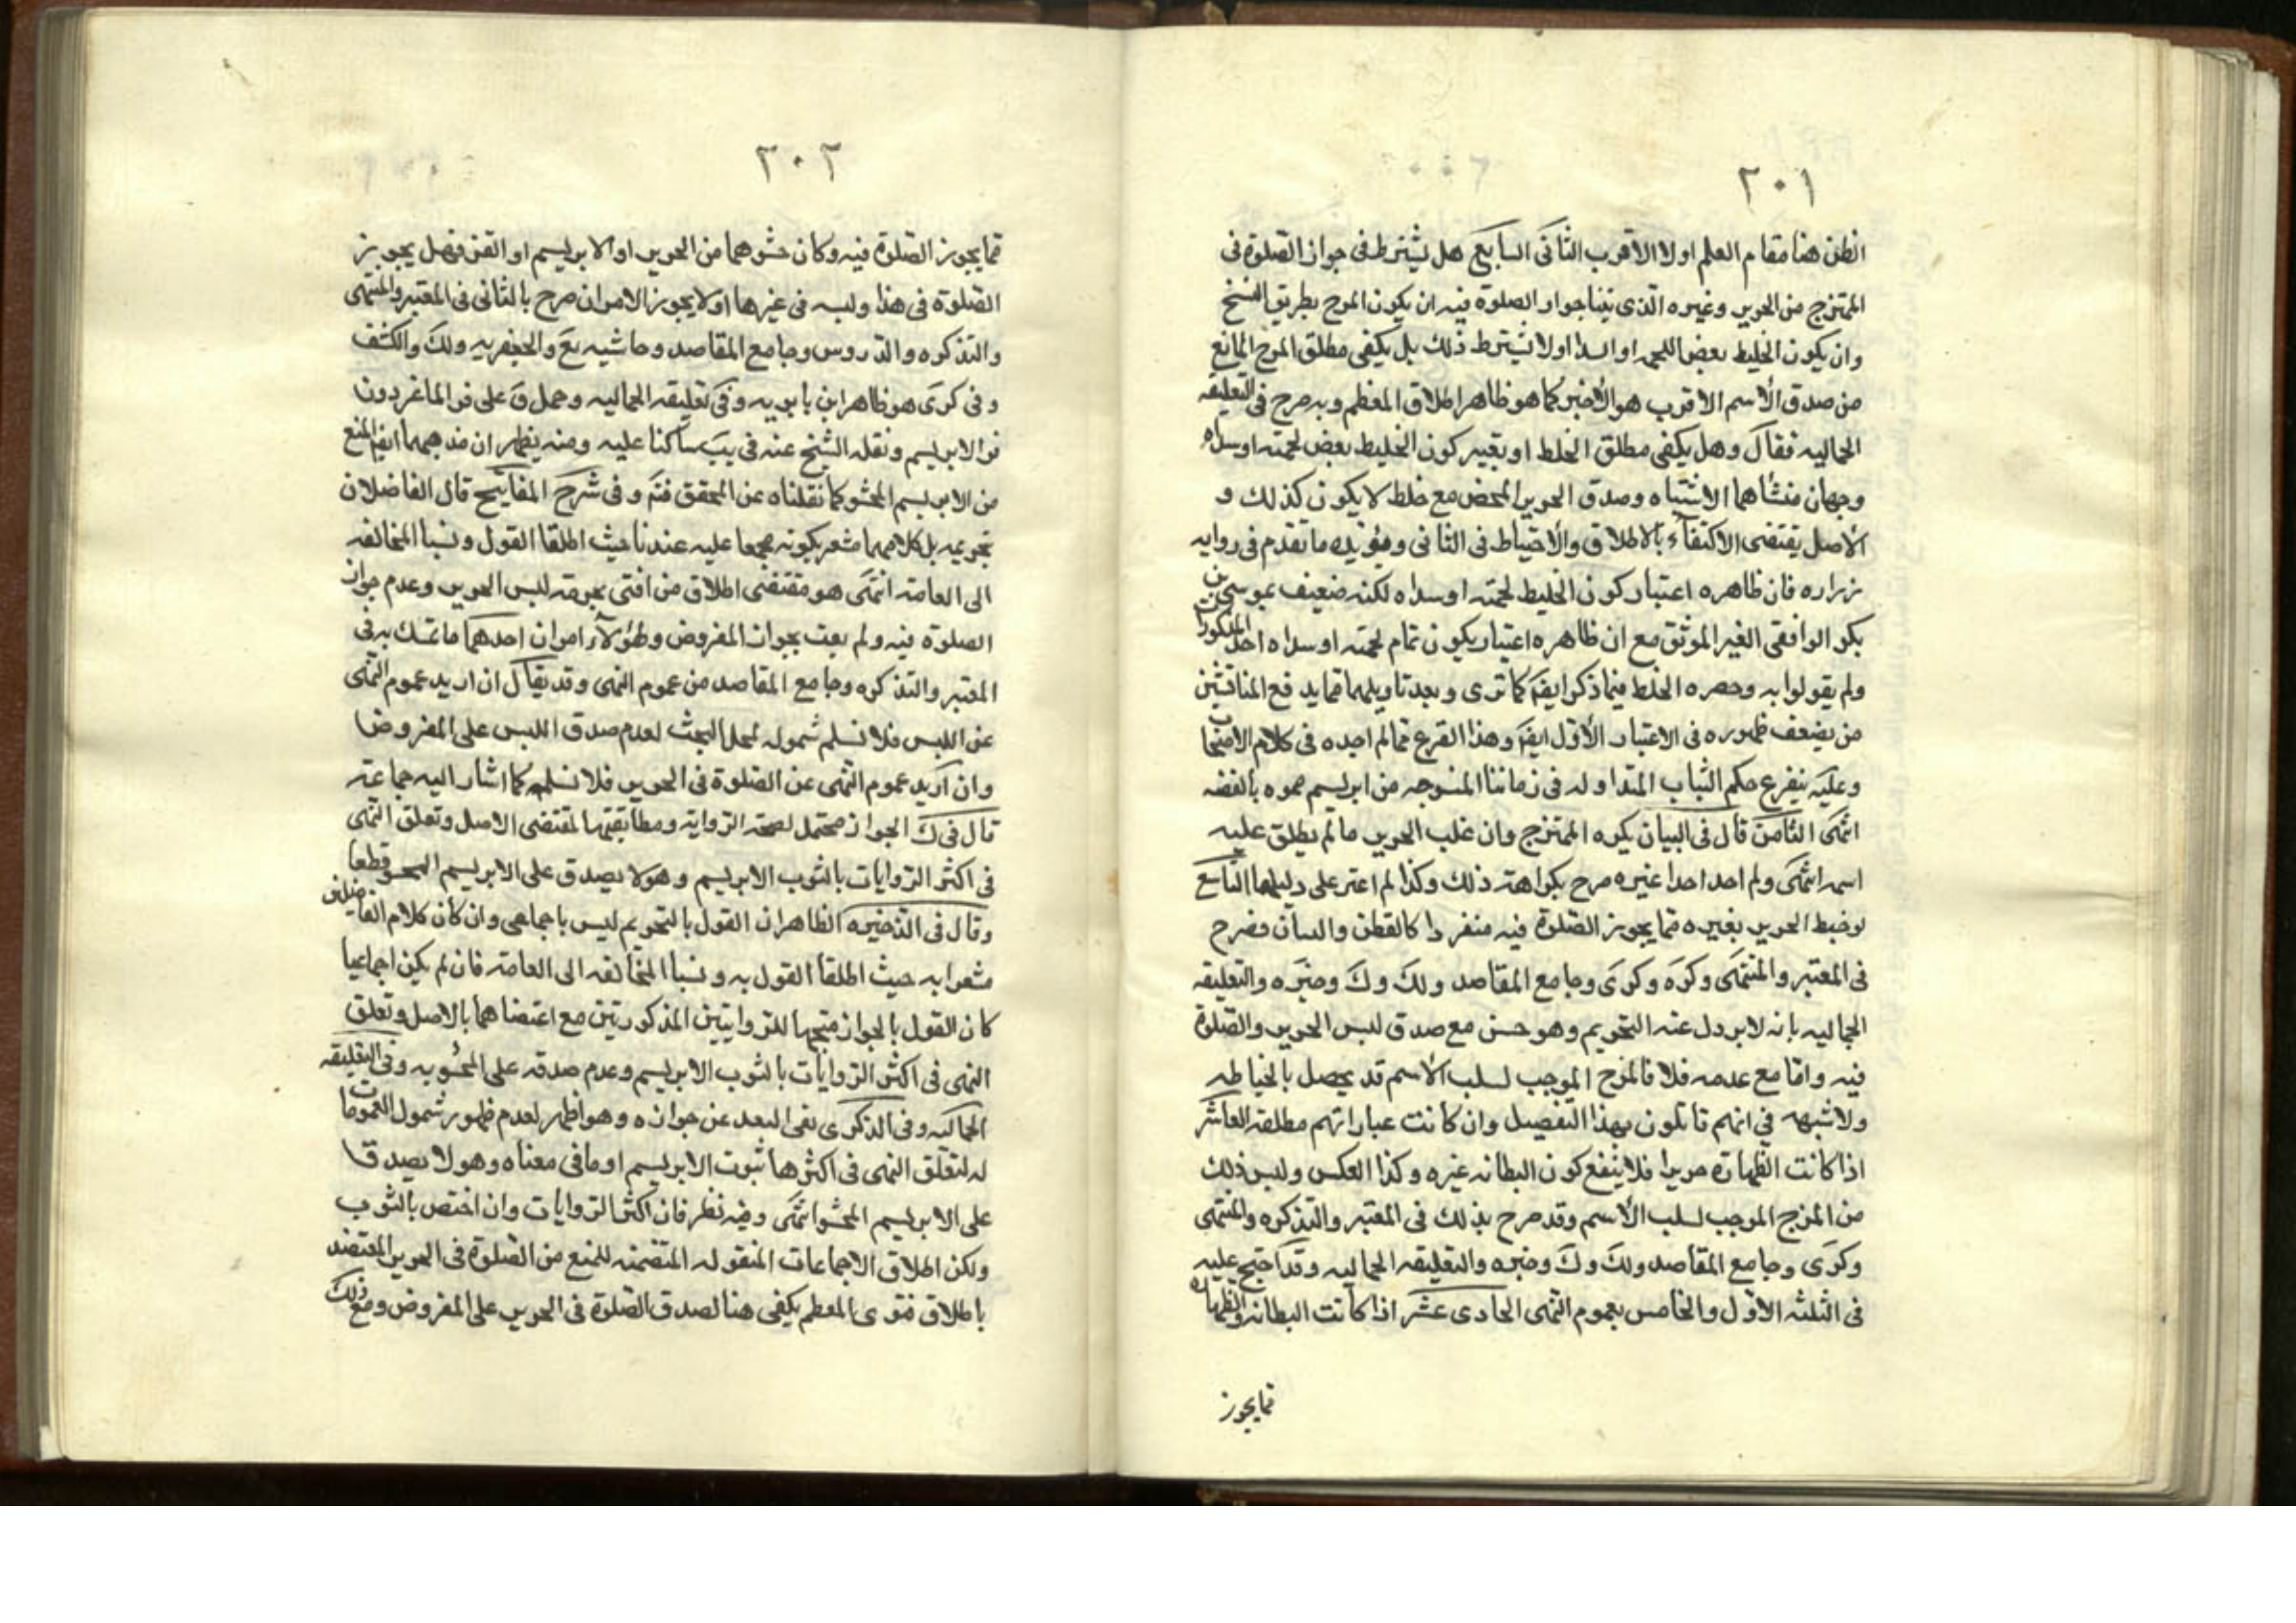 ٢٠١
الظن هنا مقام العلم اولا الاقرب الثانى السابع هل يشترط فى جواز الصلوة فى
الممتزج من الحرير وغيره الذى بينا جواز الصلوة فيه ان يكون المزج بطريق النسخ
وان يكون الخليط بعض اللحمه او السدا اولا يشترط ذلك بل يكفى مطلق المزج المانع
من صدق الأسم الاقرب هو الأخير كما هو ظاهر اطلاق المعظم وبه صرح فى التعليقه
الجماليه فقال وهل يكفى مطلق الخلط او يعتبر كون الخليط بعض لحمته او سداه
وجهان منشأهما الاشتباه وصدق الحرير المحض مع خلط لا يكون كذلك و
الأصل يقتضى الاكتفاء بالاطلاق والأحتياط فى الثانى ويؤيده ما تقدم فى روايه
زراره فان ظاهره اعتبار كون الخليط لحمته او سداه لكنه ضعيف بموسى بن
بكر الواقفى الغير الموثق مع ان ظاهره اعتبار يكون تمام لحمته او سداه احد المذكورات
ولم يقولوا به وحصره الخلط فيما ذكر ايضا كما ترى وبعد تاويلهما بما يدفع المنافيتين
من يضعف ظهوره فى الاعتبار الأول ايضا وهذا الفرع مما لم اجده فى كلام الاصحاب
وعليه يتفرع حكم الثياب المتداوله فى زماننا المنسوجه من ابريسم مموه بالفضه
انتهى الثامن قال فى البيان يكره الممتزج وان غلب الحرير ما لم يطلق عليه
اسمه انتهى ولم اجد احدا غيره صرح بكراهته ذلك وكذا لم اعثر على دليلها التاسع
لو خيط الحرير بغيره مما يجوز الصلوة فيه منفردا كالقطن والكتان فصرح
فى المعتبر والمنتهى وكره وكرى وجامع المقاصد ولك وك وخيره والتعليقه
الجماليه بانه لا يزول عنه التحريم وهو حسن مع صدق لبس الحرير والصلوة
فيه واما مع عدمه فلا فالمزج الموجب لسلب الأسم قد يحصل بالخياطه
ولا شبهه فى انهم قائلون بهذا التفصيل وان كانت عباراتهم مطلقه العاشر
اذا كانت الظهارة حريرا فلا ينفع كون البطانه غيره وكذا العكس وليس ذلك
من المزج الموجب لسلب الأسم وقد صرح بذلك فى المعتبر والتذكره والمنتهى
وكرى وجامع المقاصد ولك وك وخيره والتعليقه الجماليه وقد احتج عليه
فى الثلثه الاول والخامس بعموم النهى الحادى عشر اذا كانت البطانه والظهاره
مما يجوز
٢٠٢
مما يجوز الصلوة فيه وكان حشوهما من الحرير او الابريسم او القز فهل يجوز
الصلوة فى هذا ولبسه فى غيرها او لا يجوز الامران صرح بالثانى فى المعتبر والمنتهى
والتذكره والدروس وجامع المقاصد وحاشيه يع والجعفريه ولك والكشف
وفى كرى هو ظاهر ابن بابويه وفى تعليقه الجماليه وحمل ق على قز الماعز دون
قز الابريسم ونقله الشيخ عنه فى يب ساكتا عليه ومنه يظهر ان مذهبهما ايضا المنع
من الابريسم المحشو كما نقلناه عن المحقق فتم وفى شرح المفاتيح قال الفاضلان
بتحريمه بل كلامهما مشعر بكونه مجمعا عليه عندنا حيث اطلقا القول ونسبا المخالفه
الى العامه انتهى هو مقتضى اطلاق من افتى بحرمة لبس الحرير وعدم جواز
الصلوة فيه ولم يفت بجواز المفروض ولهؤلاء امران احدهما ما تمسك به فى
المعتبر والتذكره وجامع المقاصد من عموم النهى وقد يقال ان اريد عموم النهى
عن اللبس فلا نسلم شموله لمحل البحث لعدم صدق اللبس على المفروض
وان اريد عموم النهى عن الصلوة فى الحرير فلا نسلمه كما اشار اليه جماعه
قال فى ك الجواز محتمل لصحة الروايه ومطابقتها لمقتضى الاصل وتعلق النهى
فى اكثر الروايات بالثوب الابريسم وهو لا يصدق على الابريسم المحشو قطعا
وقال فى الذخيره الظاهر ان القول بالتحريم ليس باجماعى وان كان كلام الفاضلين
مشعرا به حيث اطلقا القول به ونسبا المخالفه الى العامه فان لم يكن اجماعيا
كان القول بالجواز متجها للروايتين المذكورتين مع اعتضاهما بالاصل وتعلق
النهى فى اكثر الروايات بالثوب الابريسم وعدم صدقه على المحشو به وفى التعليقه
الجماليه وفى الذكرى نفى البعد عن جوازه وهو اظهر لعدم ظهور شمول العمومات
له لتعلق النهى فى اكثرها بثوب الابريسم او ما فى معناه وهو لا يصدق
على الابريسم المحشو انتهى وفيه نظر فان اكثر الروايات وان اختص بالثوب
ولكن اطلاق الاجماعات المنقوله المتضمنه للمنع من الصلوة فى الحرير المعتضد
باطلاق فتوى المعظم يكفى هنا لصدق الصلوة فى الحرير على المفروض ومع ذلك